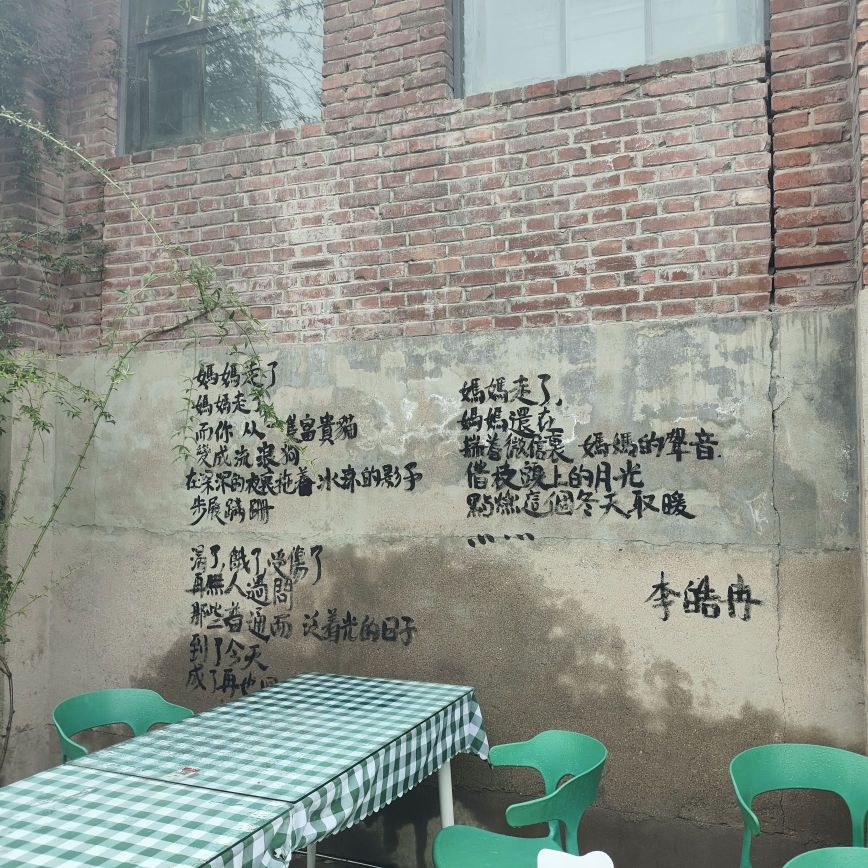 媽媽走了
媽媽走了
而你 从 隻富貴貓
變成流浪狗
在深深的夜裏拖着冰冷的影子
步履蹣跚
渴了,餓了,受傷了
再無人過問
那些普通而 泛着光的日子
到了今天
成了再也
媽媽走了,
媽媽還在
揣着微信裏 媽媽的聲音.
借皮襖上的月光
點燃這個冬天取暖
……
李皓冉